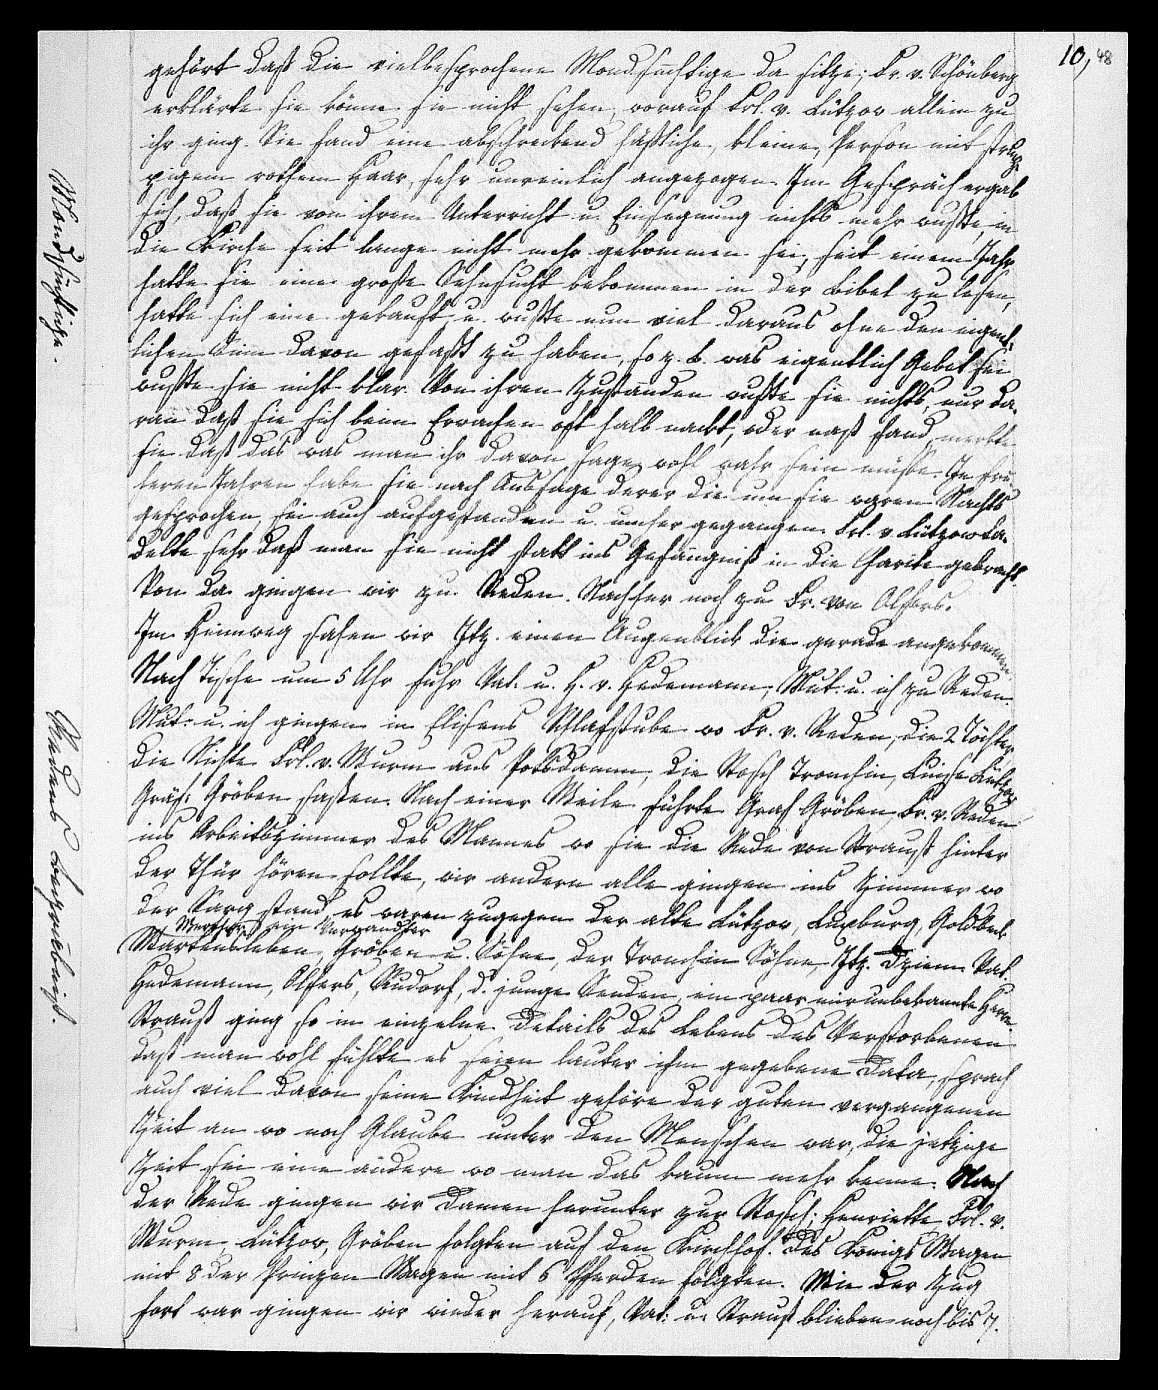 10, 48
gehört daß die vielbesprochene Mondsüchtige da sitze; Fr. v. Schönberg
erklärte sie könne sie nicht sehen, worauf Frl. v. Lützow allein zu
ihr ging. Sie fand eine abschreckend häßliche, kleine, Person mit strup¬
pigem rothem Haar, sehr unreinlich angezogen. Im Gespräch ergab
sich, daß sie von ihrem Unterricht u. Einsegnung nichts mehr wußte, in
die Kirche seit lange nicht mehr gekommen sei, seit einem Jahr
hatte sie eine große Sehnsucht bekommen in der Bibel zu lesen,
hatte sich eine gekauft, u. wußte nun viel daraus ohne den eigent¬
lichen Sinn davon gefaßt zu haben, so z. B. was eigentlich Gebet sei
wußte sie nicht klar. Von ihren Zuständen wußte sie nichts, nur da¬
ran daß sie sich beim Erwachen oft halb nackt, oder naß fand, merkte
sie daß das was man ihr davon sage, wohl wahr sein müße. In frü¬
heren Jahren habe sie nach Aussage derer die um sie waren Nachts
gesprochen, sei auch aufgestanden u. umher gegangen. Frl. v. Lützow ta¬
delte sehr daß man sie nicht statt ins Gefängniß in die Charite gebracht.
Von da gingen wir zu Reden. Nachher noch zu Fr. von Olfers.
Im Heimweg sahen wir Itz. einen Augenblick die gerade angekommen.
Nach Tische um 5 Uhr fuhr Vat. u. H. v. Hedemann, Mut. u. ich zu Reden.
Mut. u. ich gingen in Elisens Schlafstube wo Fr. v. Reden, die 2 Töchter,
die Nichte Frl. v. Wurm aus Potsdamm, die Stosch Tronchin, Luise Lützow
Gräf. Gröben saßen. Nach einer Weile führte Graf Gröben, Fr. v. Reden
ins Arbeitszimmer des Mannes wo sie die Rede von Strauß hinter
der Thür hören sollte, wir andern alle gingen ins Zimmer wo
der Sarg stand, es waren zugegen der alte Lützow, Luxburg, Goldbek
Werther, ein Verwandter
Wartensleben, Gröben u. Söhne, der Tronchin Söhne, Itz. Dziem. Vat.
Hedemann, Olfers, Rudorf, d. junge Senden, ein paar mir unbekannte Herrn.
Strauß ging so in einzelne Details des Lebens des Verstorbenen
daß man wohl fühlte es seien lauter ihm gegebene Data, sprach
auch viel davon seine Kindheit gehöre der guten vergangenen
Zeit an wo noch Glaube unter den Menschen war, die jetzige
Zeit sei eine andere wo man das kaum mehr kenne. Nach
der Rede gingen wir Damen herunter zur Stosch; Henriette, Frl. v.
Wurm, Lützow, Gröben folgten auf den Kirchhof. Des Königs Wagen
mit 8 der Prinzen Wagen mit 6 Pferden folgten. Wie der Zug
fort war gingen wir wieder herauf, Vat. u. Strauß blieben noch bis 7.
Mondsüchtige.
Redens Begräbniß.